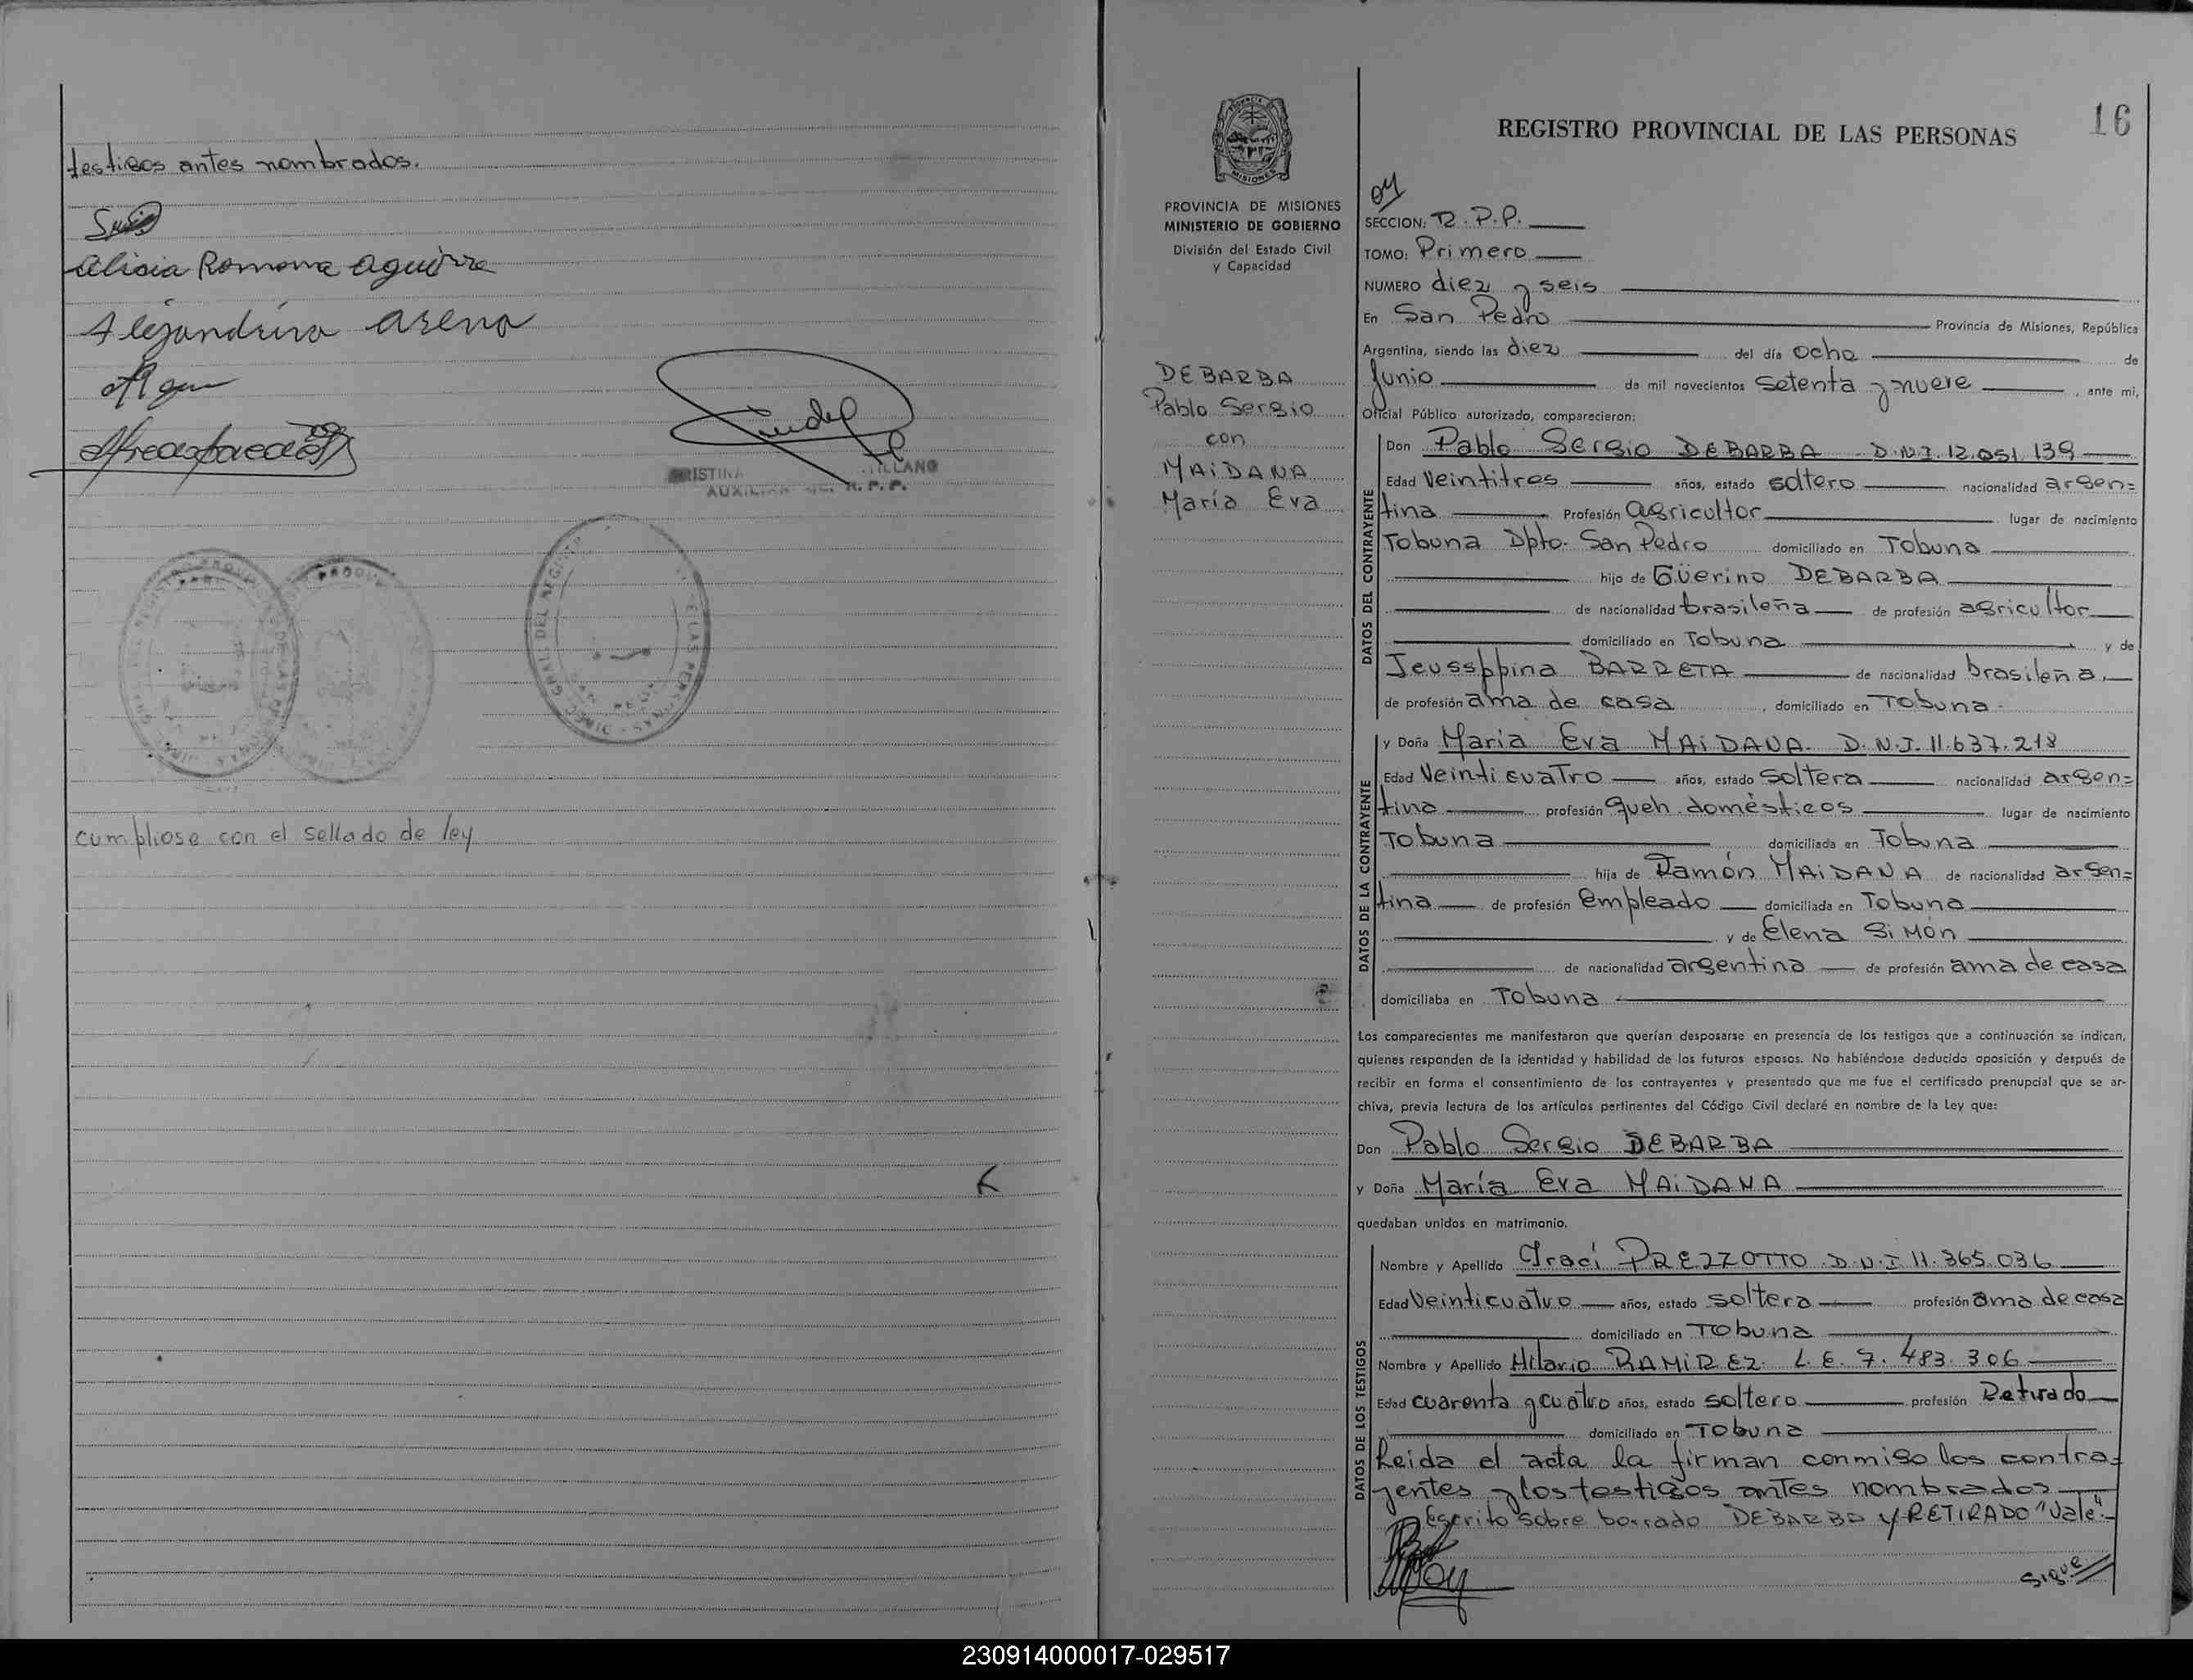 testigos antes nombrados.
Alicia Ramona Aguirre
Alejandrina Arena
AUXILIAR R. P. P.
cumpliose con el sellado de ley
16
REGISTRO PROVINCIAL DE LAS PERSONAS
MISIONES
PROVINCIA DE MISIONES
MINISTERIO DE GOBIERNO
División del Estado Civil
y Capacidad
DEBARBA
Pablo Sergio
con
MAiDANA
María Eva
04
SECCION: R.P.P.
TOMO: Primero
NUMERO diez y seis
En San Pedro Provincia de Misiones, República
Argentina, siendo las diez del día ocho de
Junio de mil novecientos setenta y nueve, ante mi,
Oficial Público autorizado, comparecieron:
DATOS DEL CONTRAYENTE
Don Pablo Sergio DEBARBA D.N.I. 12.051.139
Edad Veintitres años, estado soltero nacionalidad argen=
tina Profesión agricultor lugar de nacimiento
Tobuna Dpto. San Pedro domiciliado en Tobuna
hijo de Güerino DEBARBA
de nacionalidad brasileña de profesión agricultor
domiciliado en Tobuna y de
Jeussppina BARRETA de nacionalidad brasileña,
de profesión ama de casa, domiciliado en Tobuna.
DATOS DE LA CONTRAYENTE
y Doña Maria Eva MAiDANA. D.N.I. 11.637.218
Edad Veinticuatro años, estado soltera nacionalidad argen=
tina profesión queh. domésticos lugar de nacimiento
Tobuna domiciliada en Tobuna
hija de Ramón MAiDANA de nacionalidad argen=
tina de profesión empleado domiciliada en Tobuna
y de Elena SiMón
de nacionalidad argentina de profesión ama de casa
domiciliaba en Tobuna
Los comparecientes me manifestaron que querían desposarse en presencia de los testigos que a continuación se indican,
quienes responden de la identidad y habilidad de los futuros esposos. No habiéndose deducido oposición y después de
recibir en forma el consentimiento de los contrayentes y presentado que me fue el certificado prenupcial que se ar-
chiva, previa lectura de los artículos pertinentes del Código Civil declaré en nombre de la Ley que:
Don Pablo Sergio DEBARBA
y Doña María Eva MAiDANA
quedaban unidos en matrimonio.
DATOS DE LOS TESTIGOS
Nombre y Apellido Iraci PREZZOTTO D.N.I 11.365.036
Edad Veinticuatro años, estado soltera profesión ama de casa
domiciliado en Tobuna
Nombre y Apellido Hilario RAMiREZ L.E. 7.483.306
Edad cuarenta y cuatro años, estado soltero profesión Retirado
domiciliado en Tobuna
Leida el acta la firman conmigo los contra=
yentes y los testigos antes nombrados
Escrito sobre borrado DEBARBA y RETIRADO "Vale".
Sigue
230914000017-029517